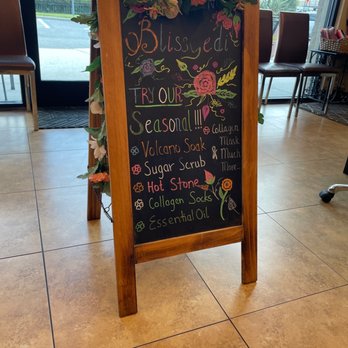 Blissgedi
TRY OUR
Seasonal!!!
Volcano Soak
Sugar Scrub
Hot Stone
Collagen Socks
Essential Oil
Collagen
Mask
& Much
More...